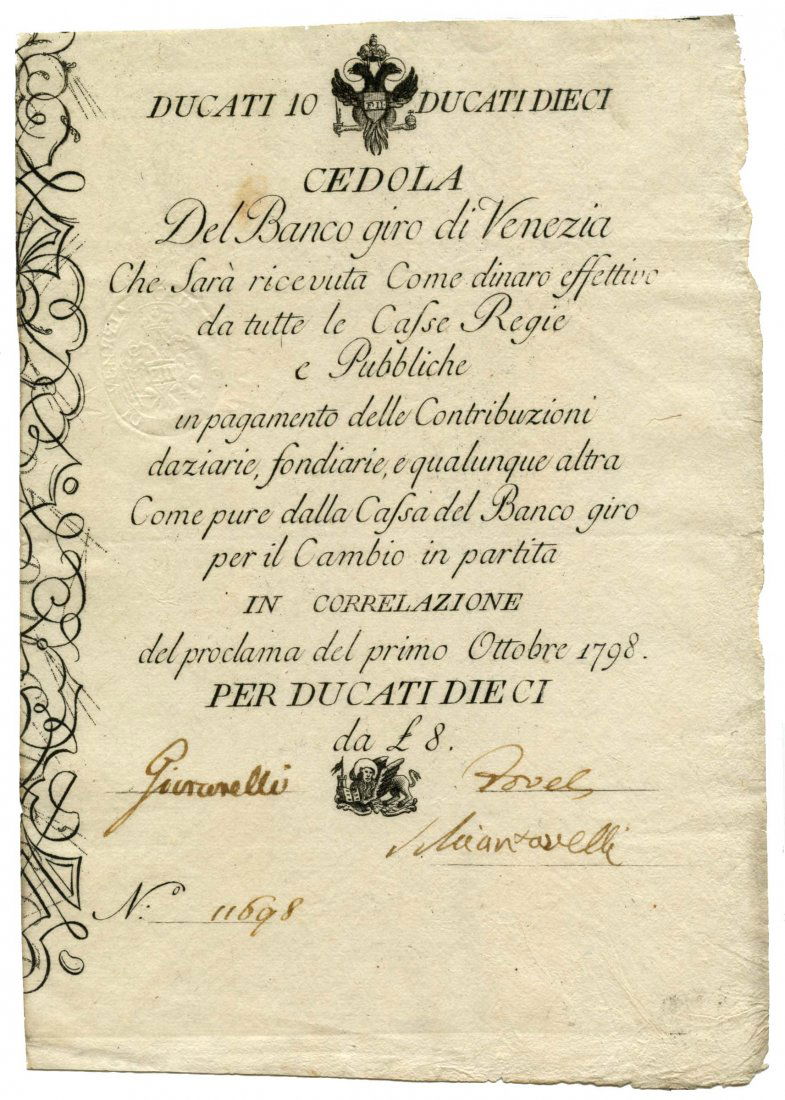 DUCATI 10 DUCATI DIECI
CEDOLA
Del Banco giro di Venezia
Che Sarà ricevuta Come dinaro effettivo
da tutte le Caſse Regie
e Pubbliche
in pagamento delle Contribuzioni
daziarie, fondiarie, e qualunque altra
Come pure dalla Caſsa del Banco giro
per il Cambio in partita
IN CORRELAZIONE
del proclama del primo Ottobre 1798.
PER DUCATI DIECI
da £ 8.
N.º 11698